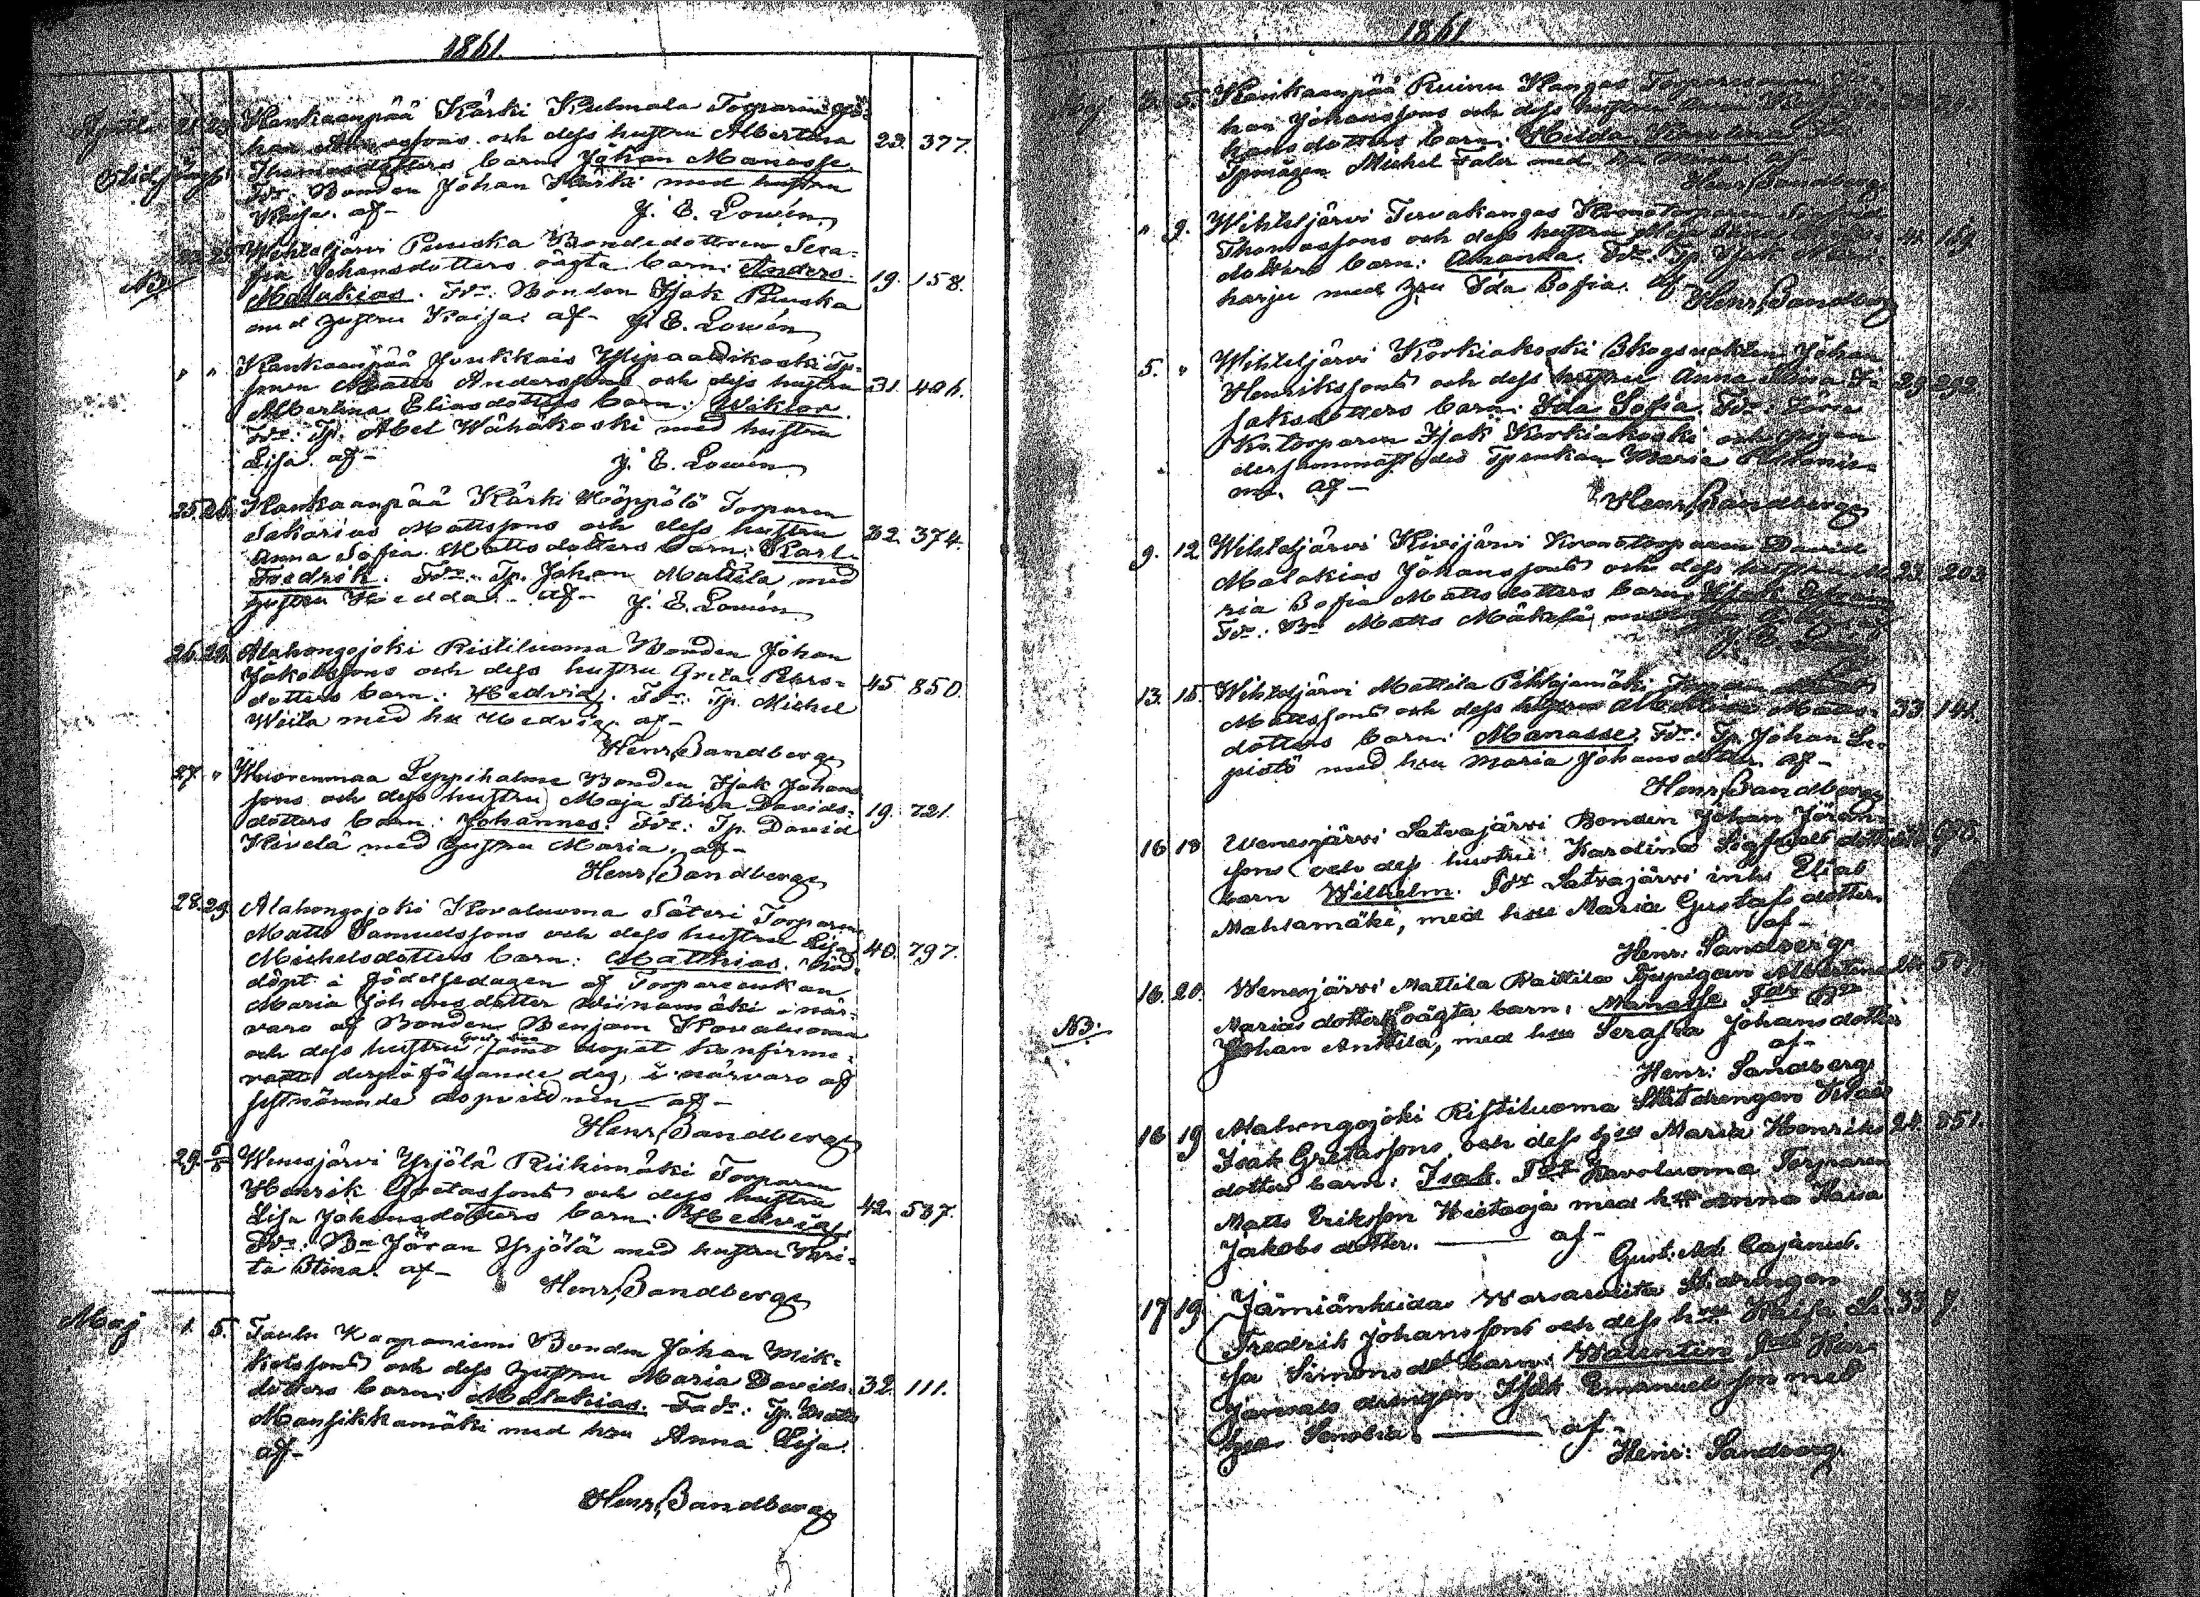 1861.
April 21. 23. Kankaanpää Kärki Kulmala Torparen Jo-
han och dess hustru Albertina 23. 377.
Thomasdotters barn: Johan Manasse.
Fdr: Bonden Johan Kärki med hustru
Kaisa. af- J. E. Lowén
Wihteljärvi Puuska Bondedottren Sera-
NB. fia Johansdotters oägta barn: Anders 19. 158.
Malakias. Fdr: Bonden Isak Puuska
med hustru Kaisa. af- J. E. Lowén
" " Kankaanpää Jonkkais Ylipaadikoski Tp-
sonen Matts Anderssons och dess hustru 31. 406.
Albertina Eliasdotters barn: Wiktor.
Fdr: Tp. Abel Wähäkoski med hustru
Lisa. af- J. E. Lowén
25. 26. Kankaanpää Kärki Höppölö Torparen
Sakarias Mattssons och dess hustru 32. 374.
Anna Sofia Mattsdotters barn: Karl
Fredrik. Fdr: Tp. Johan Mattila med
hustru Hedda. af- J. E. Lowén
26. 28. Alahongojoki Ristiluoma Bonden Johan
Jakobssons och dess hustru Greta Pehrs-
dotters barn: Hedvig. Fdr: Tp. Michel 45. 850.
Weila med hu Hedvig. af-
Henr. Sandberg
27. " Wuorenmaa Leppihalme Bonden Isak Johans-
sons och dess hustru Maja Stina Davids-
dotters barn: Johannes. Fdr: Tp. David 19. 721.
Kivelä med hustru Maria. af-
Henr. Sandberg
28. 29. Alahongojoki Kovaluoma Säteri Torparen
Matts Samuelssons och dess hustru Lisa
Michelsdotters barn: Matthias. Nöd- 40. 797.
döpt å födelsedagen af Torpareenkan
Maria Johansdotter Wiinamäki i när-
varo af Bonden Benjam Kovaluoma
och dess hustru samt dopet konfirme-
radt derpå följande dag, i närvaro af
sistnämnde dopvittnen af-
Henr. Sandberg
29. 5/5 Wenesjärvi Yrjölä Riihimäki Torparen
Henrik Gretassons och dess hustru
Lisa Johansdotters barn: Hedvig. 42. 537.
Fdr: Bn Jöran Yrjölä med hustru Gre-
ta Stina. af-
Henr. Sandberg
Maj 1. 5. Taulu Karpaniemi Bonden Johan Mik-
kelssons och dess hustru Maria Davids-
dotters barn: Malakias. Fadr: Tp. Matts 32. 111.
Mansikkamäki med hru Anna Lisa.
af-
Henr. Sandberg
1861
Maj 5. Kankaanpää Ruinu Kangas Torparesonen Jo-
han Johanssons och dess hustru Anna
hansdotters barn: Hedda Karolina.
Spmågen Michel Taler med af-
Henr. Sandberg
" 9. Wihteljärvi Tervakangas Kronotorparen
Thomassons och dess hustru Maja 169.
dotters barn: Amanda. Fdr: Tp. Isak
harju med hru Ida Sofia. af-
Henr. Sandberg
5. " Wihteljärvi Korkiakoski Skogsvakten Johan
Henrikssons och dess hustru Anna Stina I- 29. 292.
saksdotters barn: Ida Sofia. Fdr:
Kr.torparen Isak Korkiakoski och pigan
dersammastädes Maria
af-
Henr. Sandberg
9. 12 Wihteljärvi Kivijärvi Kronotorparen David
Malakias Johanssons och dess hustru Ma- 23. 203
ria Sofia Mattsdotters barn: Isak Efraim
Fdr: Bn Matts Mäkelä
13. 15. Wihteljärvi Mattila Pihlajamäki
Mattssons och dess hustru Albertina Matts- 33. 141.
dotters barn: Manasse. Fdr: Tp. Johan Le-
pistö med hru Maria Johansdotter. af-
Henr. Sandberg
16 18 Wenesjärvi Satvajärvi Bonden Johan Jöran-
sons och dess hustru Karolina Sigfreds dott
barn Wilhelm. Fdr Satvajärvi inhs Eliab
Mahlamäki, med hru Maria Gustafsdotter.
af-
Henr: Sandberg
16. 20. Wenesjärvi Mattila Raittila Tjenstpigan Albertina
NB: Mariasdotters oägta barn, Manasse. Fdr Bn
Johan Anttila, med hru Serafia Johansdotter
af-
Henr: Sandberg
18 19 Alahongojoki Ristiluoma Statdrengen
Isak Gretassons och dess hru Maria Henriks 24. 851.
dotters barn: Isak. Fdr Kovoluoma Torparen
Matts Eriksson Hietaoja med hru Anna Kaisa
Jakobsdotter. af-
Gust. Ad. Cajanus.
17 19 Jämiänkeidas Warsaviita St.drengen
Fredrik Johanssons och dess hrus Kaisa Li- 33 7.
sa Simonsdot barn: Walentin Fdr
Jansais drengen Isak Emanuelsson med
hru Senobia. af-
Henr: Sandberg